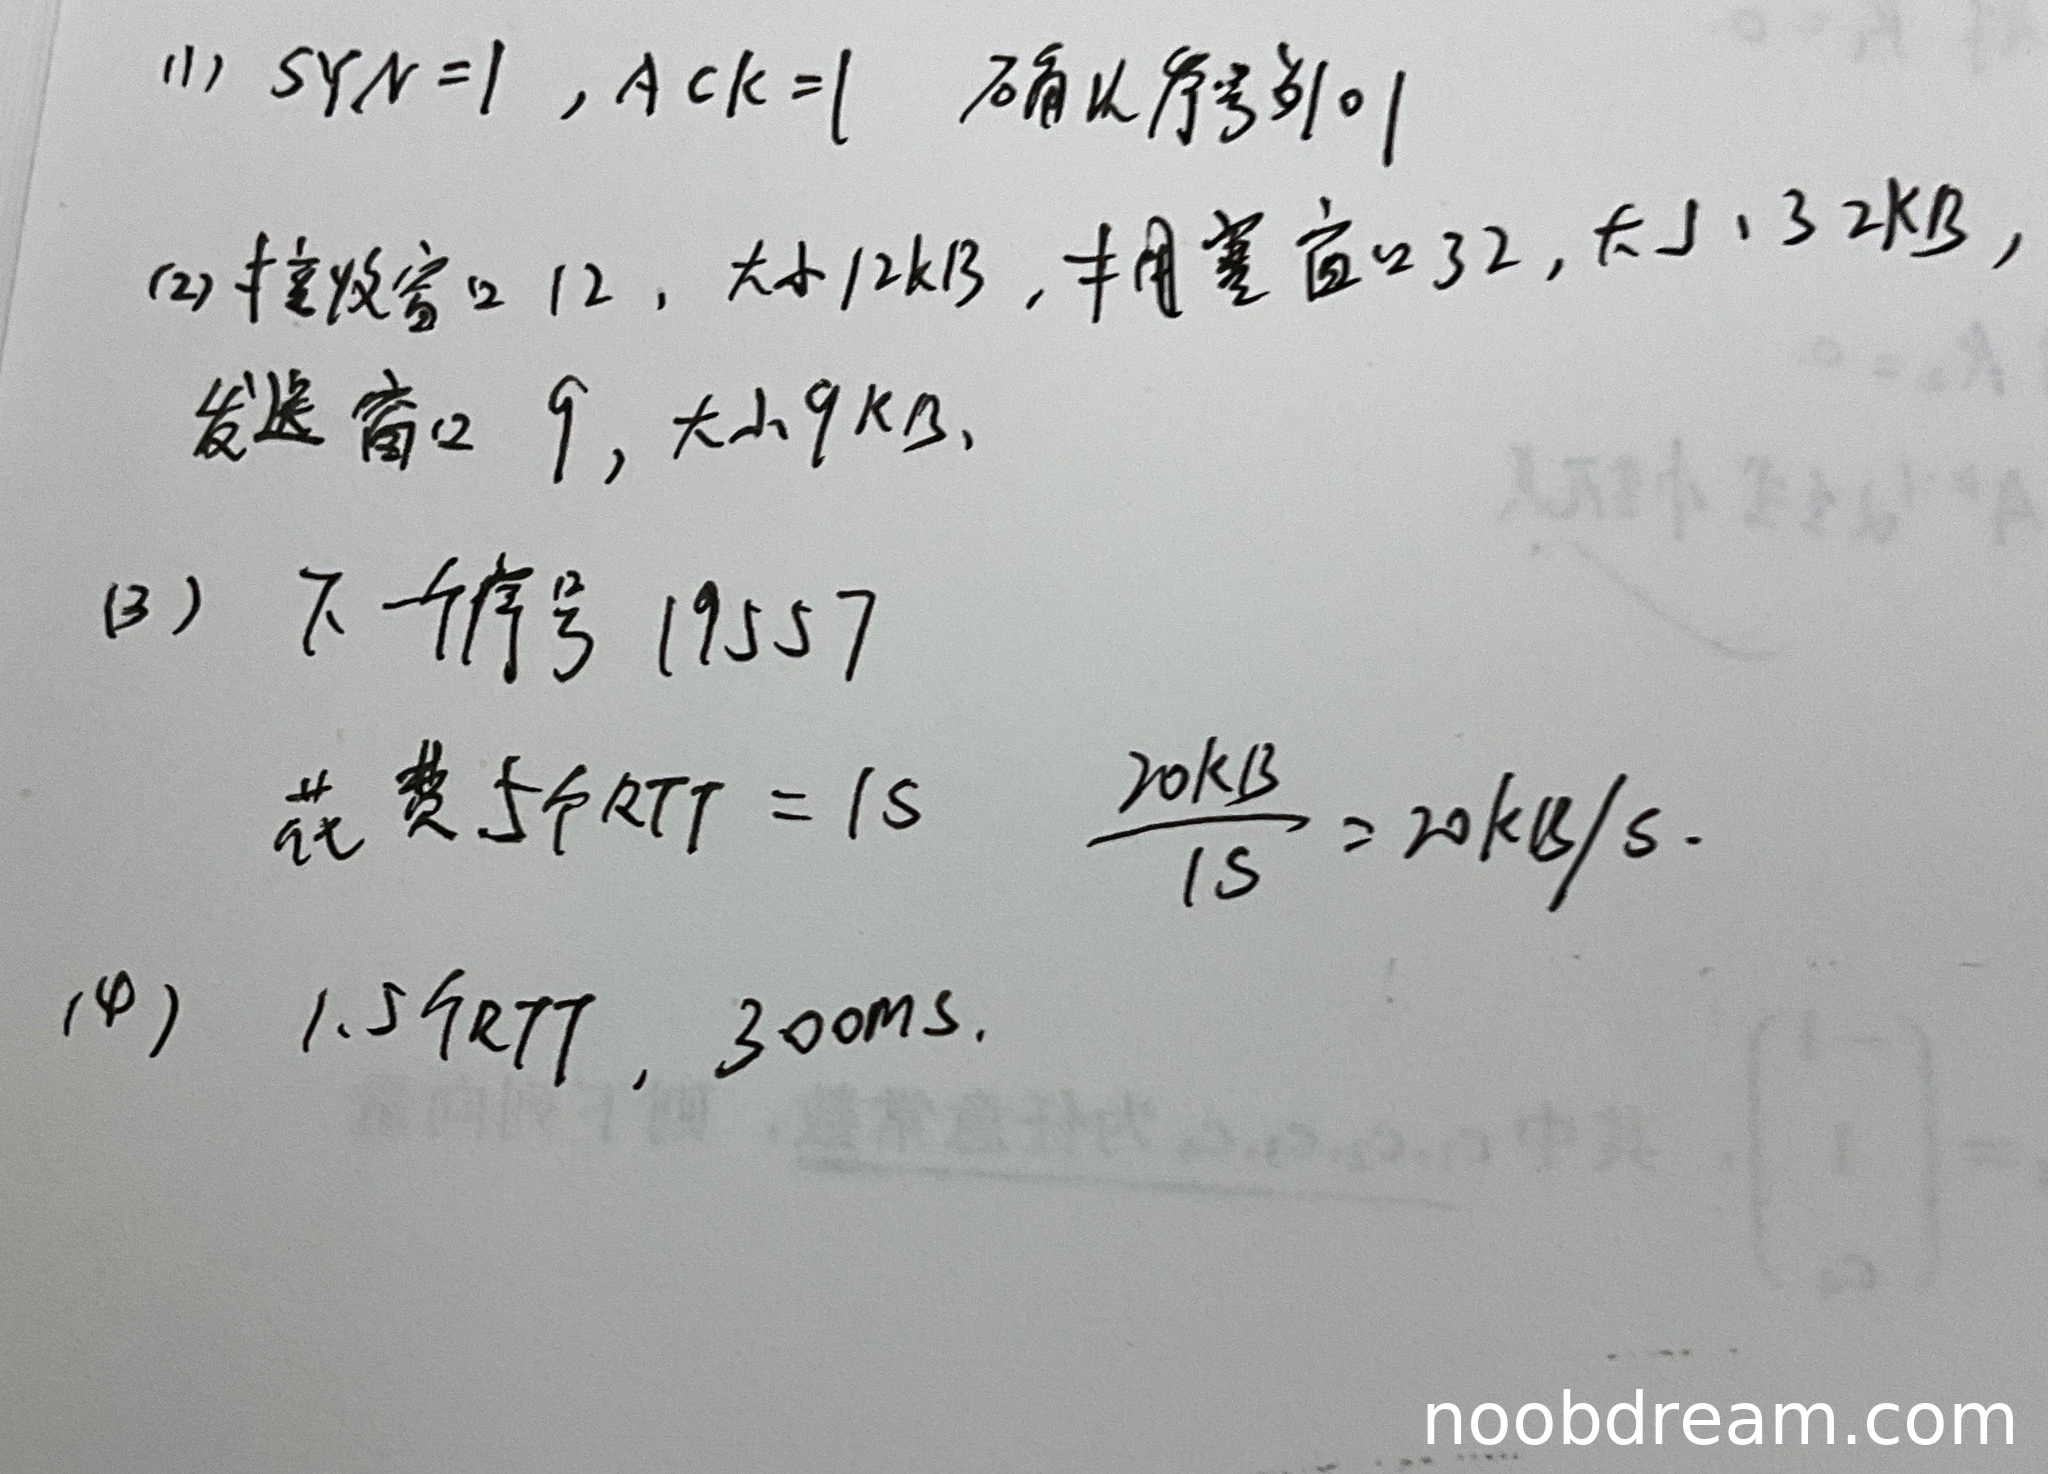 (1) SYN=1,ACK=1 确认序号为101
(2)接收窗口12,大小12KB,拥塞窗口32,大小32KB,
发送窗口9,大小9KB、
(3) 下一个序号 19557
花费5个RTT=1S 20KB/1S=20KB/S.
(4) 1.5个RTT,300ms.
其中C₁,C₂,C₃,C₄为任意常数,则下列向量
noobdream.com